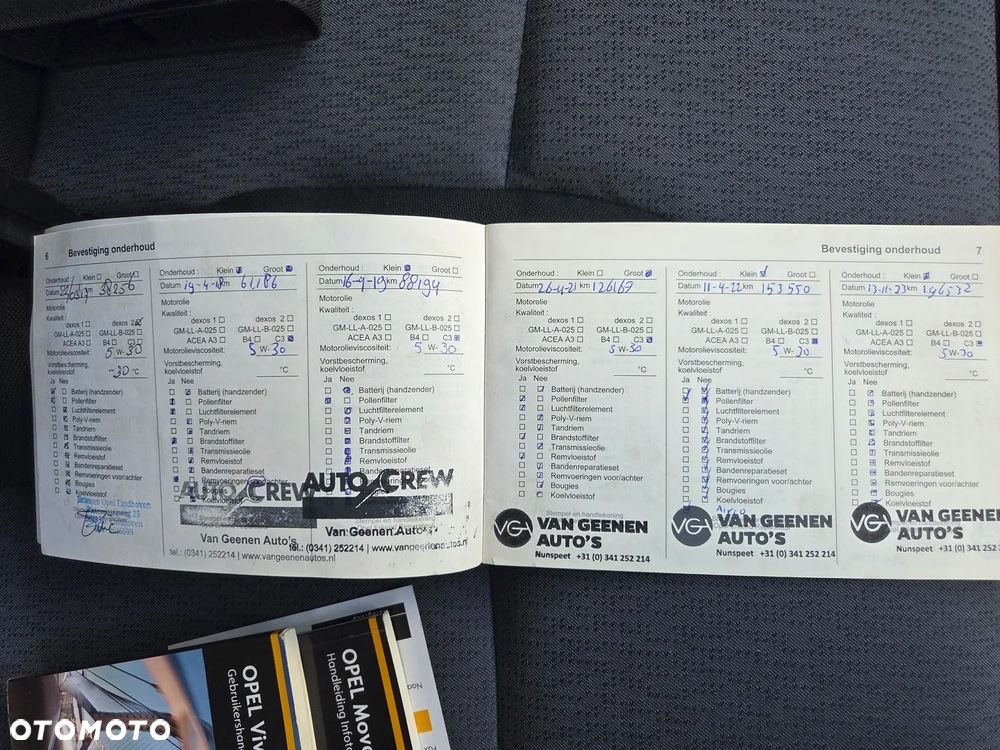 6 Bevestiging onderhoud
Onderhoud : Klein Groot
Datum km 38256
dexos 1 dexos 2
GM-LL-A-025 GM-LL-B-025
ACEA A3 B4 C3
Motorolieviscositeit: 5 W- 30
Vorstbescherming,
koelvloeistof -30 °C
Ja Nee
Batterij (handzender)
Pollenfilter
Luchtfilterelement
Poly-V-riem
Tandriem
Brandstoffilter
Transmissieolie
Remvloeistof
Bandenreparatieset
Remvoeringen voor/achter
Bougies
Koelvloeistof
Opel Eindhoven
Onderhoud : Klein Groot
Datum 19-4-18 km 61,186
Motorolie
Kwaliteit :
dexos 1 dexos 2
GM-LL-A-025 GM-LL-B-025
ACEA A3 B4 C3
Motorolieviscositeit: 5 W-30
Vorstbescherming,
koelvloeistof °C
Ja Nee
Batterij (handzender)
Pollenfilter
Luchtfilterelement
Poly-V-riem
Tandriem
Brandstoffilter
Transmissieolie
Remvloeistof
Bandenreparatieset
Remvoeringen voor/achter
Bougies
Koelvloeistof
AUTO CREW
Van Geenen Auto's
tel.: (0341) 252214 | www.vangeenenautos.nl
Onderhoud : Klein Groot
Datum km 88194
Motorolie
Kwaliteit :
dexos 1 dexos 2
GM-LL-A-025 GM-LL-B-025
ACEA A3 B4 C3
Motorolieviscositeit: 5 W-30
Vorstbescherming,
koelvloeistof °C
Ja Nee
Batterij (handzender)
Pollenfilter
Luchtfilterelement
Poly-V-riem
Tandriem
Brandstoffilter
Transmissieolie
Remvloeistof
Bandenreparatieset
Remvoeringen voor/achter
AUTO CREW
Stempel en handtekening
Van Geenen Auto's
tel.: (0341) 252214 | www.vangeenenautos.nl
Bevestiging onderhoud 7
Onderhoud : Klein Groot
Datum 26-4-21 km 126167
Motorolie
Kwaliteit :
dexos 1 dexos 2
GM-LL-A-025 GM-LL-B-025
ACEA A3 B4 C3
Motorolieviscositeit: 5 W-30
Vorstbescherming,
koelvloeistof °C
Ja Nee
Batterij (handzender)
Pollenfilter
Luchtfilterelement
Poly-V-riem
Tandriem
Brandstoffilter
Transmissieolie
Remvloeistof
Bandenreparatieset
Remvoeringen voor/achter
Bougies
Koelvloeistof
Stempel en handtekening
VGA VAN GEENEN
AUTO'S
Nunspeet +31 (0) 341 252 214
Onderhoud : Klein Groot
Datum 11-4-22 km 153550
Motorolie
Kwaliteit :
dexos 1 dexos 2
GM-LL-A-025 GM-LL-B-025
ACEA A3 B4 C3
Motorolieviscositeit: 5 W-30
Vorstbescherming,
koelvloeistof °C
Ja Nee
Batterij (handzender)
Pollenfilter
Luchtfilterelement
Poly-V-riem
Tandriem
Brandstoffilter
Transmissieolie
Remvloeistof
Bandenreparatieset
Remvoeringen voor/achter
Bougies
Koelvloeistof
Airco
VGA VAN GEENEN
AUTO'S
Nunspeet +31 (0) 341 252 214
Onderhoud : Klein Groot
Datum 13-11-23 km 196532
Motorolie
Kwaliteit :
dexos 1 dexos 2
GM-LL-A-025 GM-LL-B-025
ACEA A3 B4 C3
Motorolieviscositeit: 5 W-30
Vorstbescherming,
koelvloeistof °C
Ja Nee
Batterij (handzender)
Pollenfilter
Luchtfilterelement
Poly-V-riem
Tandriem
Brandstoffilter
Transmissieolie
Remvloeistof
Bandenreparatieset
Remvoeringen voor/achter
Bougies
Koelvloeistof
VGA VAN GEENEN
AUTO'S
Nunspeet +31 (0) 341 252
OPEL Viv
Gebruikershan
OPEL Mova
Handleiding Infota
OTOMOTO